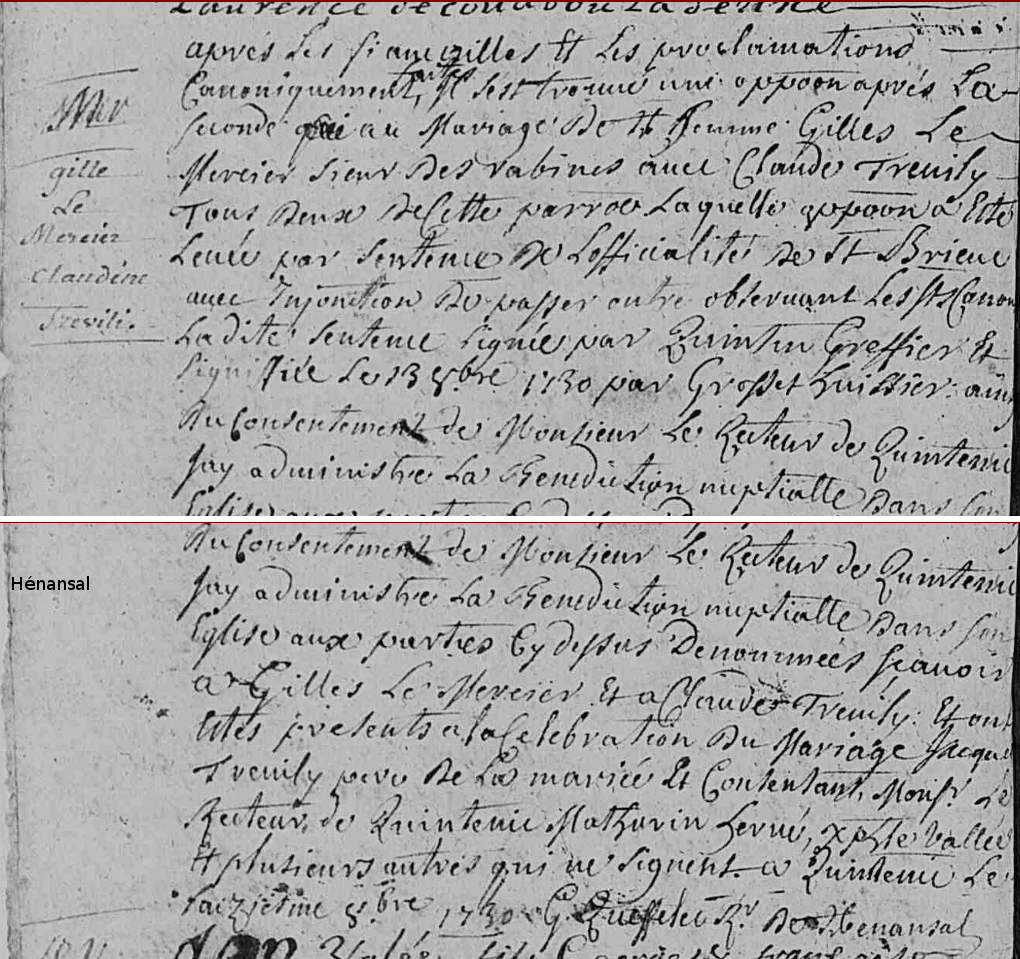 Laurence de
après les fiançailles Et les proclamations
Canoniquement faites, Il s'est trouvé une oppoon après La
seconde au Mariage De Gilles Le
Mercier Sieur Des rabines avec Claude Treuily
Tous Deux De Cette parroe Laquelle oppoon a Esté
Levée par Sentence De Lofficialité De St Brieuc
avec Injonction De passer outre observant Les Sts Canon
La dite Sentence Signée par Quintin Greffier Et
Signifiée Le 13 8bre 1730 par Grosset huissier
Du Consentement de Monsieur Le Recteur de Quintenic
Jay administre La Benediction nuptialle Dans Son
Mar
gille
Le
Mercier
Claudine
Trevili.
Du Consentement de Monsieur Le Recteur de Quintenic
Hénansal
Jay administre La Benediction nuptialle Dans Son
Eglise aux parties Cy dessus Denommées Scavoir
a Gilles Le Mercier Et a Claude Treuily: Et ont
Estés présents a la Celebration Du Mariage Jacque
Treuily pere De La mariée Et Consentant, Monsr Le
Recteur de Quintenic Mathurin hervé, xpfle Vallée
Et plusieurs autres qui ne Signent a Quintenic Le
saizieme 8bre 1730 G. Queffelec Rr De henansal